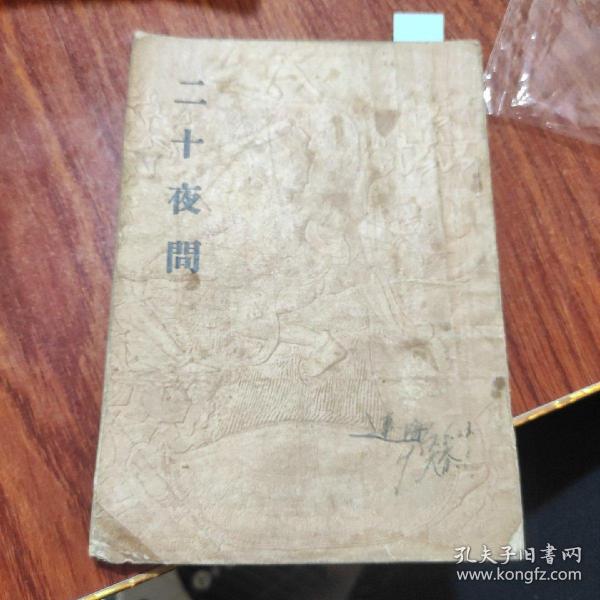 二十夜間
孔夫子旧書网
www.kongfz.com